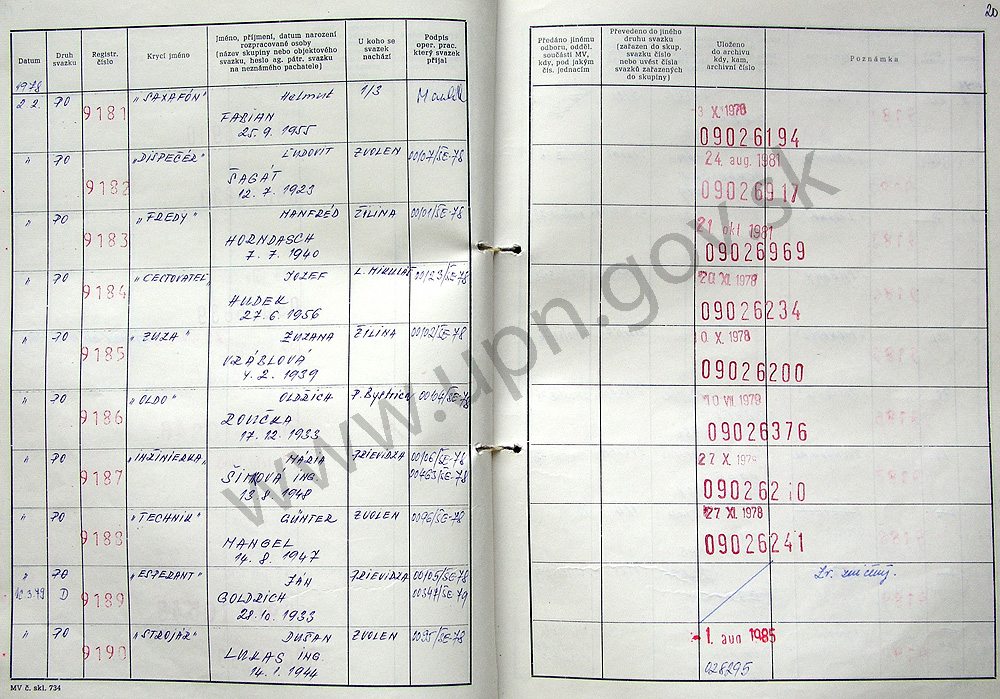 20
Datum
Druh svazku
Registr. číslo
Krycí jméno
Jméno, příjmení, datum narození rozpracované osoby (název skupiny nebo objektového svazku, heslo ag. pátr. svazku na neznámého pachatele)
U koho se svazek nachází
Podpis oper. prac. který svazek přijal
Předáno jinému odboru, odděl. součásti MV, kdy, pod jakým čís. jednacím
Převedeno do jiného druhu svazku (zařazen do skup. svazku číslo nebo uvést čísla svazků zařazených do skupiny)
Uloženo do archivu kdy, kam, archivní číslo
Poznámka
1978
2 2. 70 9181 „SAXAFÓN" Helmut 1/3
FABIAN
25. 9. 1955
3 X. 1978
09026194
" 70 9182 „DISPEČÉR" ĽUDOVIT ZVOLEN 00107/ŠE-78
ŠAGÁT
12. 7. 1923
24. aug. 1981
09026917
" 70 9183 „FREDY" MANFRÉD ŽILINA 00101/ŠE-78
HORNDASCH
7. 7. 1940
21 okt 1981
09026969
" 70 9184 „CESTOVATEL„ JOZEF L. MIKULÁŠ 00123/ŠE-78
HUDEK
27. 6. 1956
20 XI. 1978
09026234
" 70 9185 „ZUZA" ZUZANA ŽILINA 00102/ŠE-78
VRÁBLOVÁ
4. 2. 1939
0 X. 1978
09026200
" 70 9186 „OLDO" OLDŘICH P. Bystrica 00104/ŠE-78
ROUČKA
17. 12. 1933
10 VII. 1979
09026376
" 70 9187 „INŽINIERKA„ MÁRIA PRIEVIDZA 00106/ŠE-78
ŠIMKOVÁ ING. 00463/ŠE-78
1948
27 X 197
09026210
" 70 9188 „TECHNIK" GÜNTER ZVOLEN 0096/ŠE-78
MANGEL
14. 8. 1947
27 XI. 1978
09026241
" 70 9189 „ESPERANT" JÁN PRIEVIDZA 00105/ŠE-78
12.3.79 D GOLDRICH 00347/ŠE-79
28. 10. 1933
Zv. zničený.
" 70 9190 „STROJÁR" DUŠAN ZVOLEN 0095/ŠE-78
LUKAS ING.
14. 1. 1944
-1. aug 1985
028295
MV č. skl. 734
www.upn.gov.sk